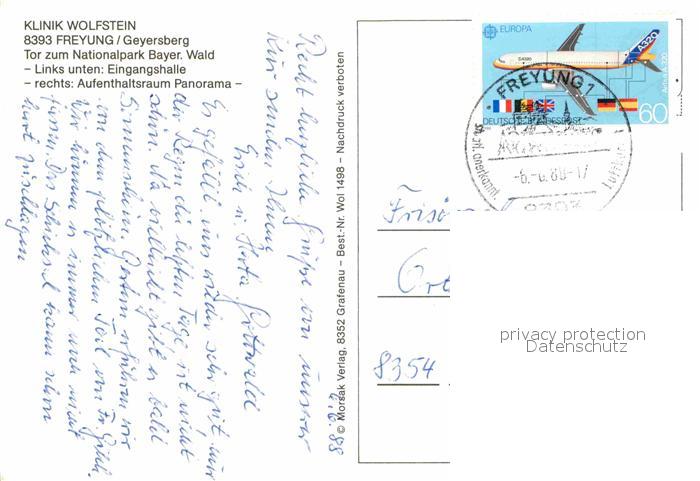 KLINIK WOLFSTEIN
8393 FREYUNG/Geyersberg
Tor zum Nationalpark Bayer. Wald
– Links unten: Eingangshalle
– rechts: Aufenthaltsraum Panorama –
Recht herzliche Grüße von unserer
Kur senden Ihnen
u. Herta
Es gefällt uns wieder sehr gut, nur
der Regen die letzten Tage, ist nicht
schön. Na vielleicht gibt es bald
Sonnenschein. Gestern erfuhren wir
von dem plötzlichen Tod von Fr.
Wir können es immer noch nicht
Das Schicksal kann schon
hart zuschlagen
6.6.88
© Morsak Verlag, 8352 Grafenau – Best.-Nr. Wol 1498 – Nachdruck verboten
EUROPA
A320
Airbus A 320
DEUTSCHE BUNDESPOST
60
FREYUNG 1
anerkannt.
-6.-6.88-17
8393
Ort
8354
privacy protection
Datenschutz